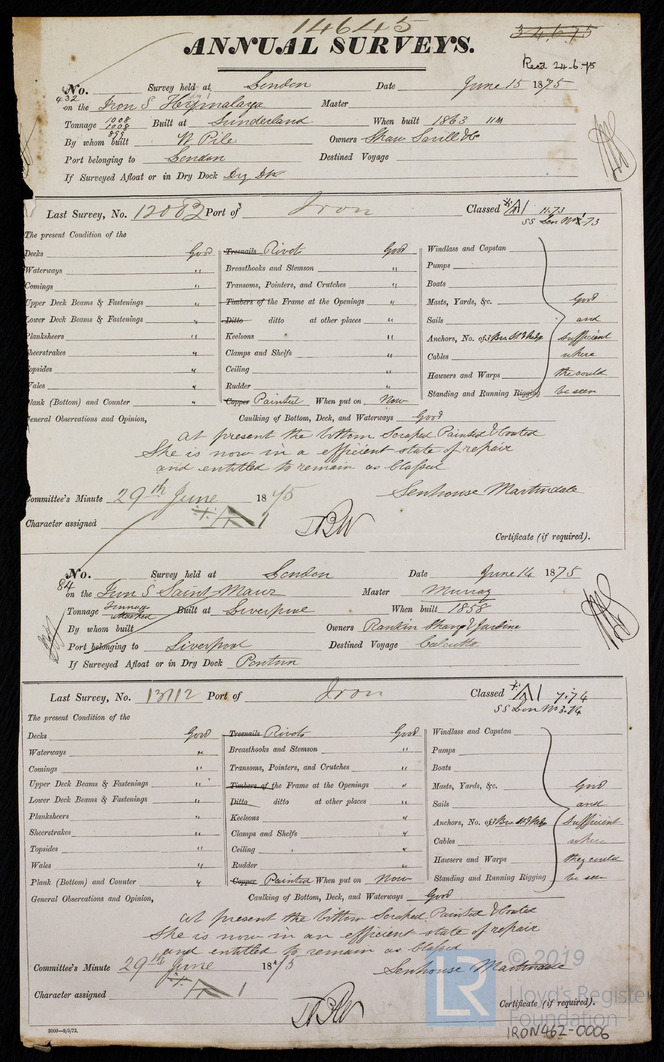 14645
34675
ANNUAL SURVEYS.
Recd 24-6-75
No. 432 Survey held at London Date June 15 1875
on the Iron S Himalaya Master
Tonnage 1008 1008 898 Built at Sunderland When built 1863 11M
By whom built W. Pile Owners Shaw Savill & Co
Port belonging to London Destined Voyage
If Surveyed Afloat or in Dry Dock Dry Dk
Last Survey, No. 12082 Port of Iron Classed A1 11.73
SS Lon No 73
The present Condition of the
Decks Good Treenails Rivets Good Windlass and Capstan
Waterways " Breasthooks and Stemson " Pumps
Comings " Transoms, Pointers, and Crutches " Boats
Upper Deck Beams & Fastenings " Timbers of the Frame at the Openings " Masts, Yards, &c. Good
Lower Deck Beams & Fastenings " Ditto ditto at other places " Sails and
Planksheers " Keelsons " Anchors, No. of sufficient
Sheerstrakes " Clamps and Shelfs " Cables where
Topsides " Ceiling " Hawsers and Warps the could
Wales " Rudder " Standing and Running Rigging be seen
Plank (Bottom) and Counter " Copper Painted When put on Now
General Observations and Opinion, Caulking of Bottom, Deck, and Waterways Good
At present the bottom Scraped Painted & Coated
She is now in a efficient state of repair
and entitled to remain as Classed
Committee's Minute 29th June 1875 Senhouse Martindale
Character assigned A1
Certificate (if required).
No. 84 Survey held at London Date June 14 1875
on the Iron S Saint Maur Master Murray
Tonnage Built at Liverpool When built 1858
By whom built Owners Rankin Strang & Jardine
Port belonging to Liverpool Destined Voyage Calcutta
If Surveyed Afloat or in Dry Dock Pontun
Last Survey, No. 13112 Port of Iron Classed A1 7.74
SS Lon No 3.74
The present Condition of the
Decks Good Treenails Rivets Good Windlass and Capstan
Waterways " Breasthooks and Stemson " Pumps
Comings " Transoms, Pointers, and Crutches " Boats
Upper Deck Beams & Fastenings " Timbers of the Frame at the Openings " Masts, Yards, &c. Good
Lower Deck Beams & Fastenings " Ditto ditto at other places " Sails and
Planksheers " Keelsons " Anchors, No. of sufficient
Sheerstrakes " Clamps and Shelfs " Cables where
Topsides " Ceiling " Hawsers and Warps they could
Wales " Rudder " Standing and Running Rigging be seen
Plank (Bottom) and Counter " Copper Painted When put on Now
General Observations and Opinion, Caulking of Bottom, Deck, and Waterways Good
At present the bottom Scraped Painted & Coated
She is now in an efficient state of repair
and entitled to remain as Classed
Committee's Minute 29th June 1875 Senhouse Martindale
Character assigned A1
Certificate (if required).
LR © 2019
Lloyd's Register
Foundation
IRON462-0006